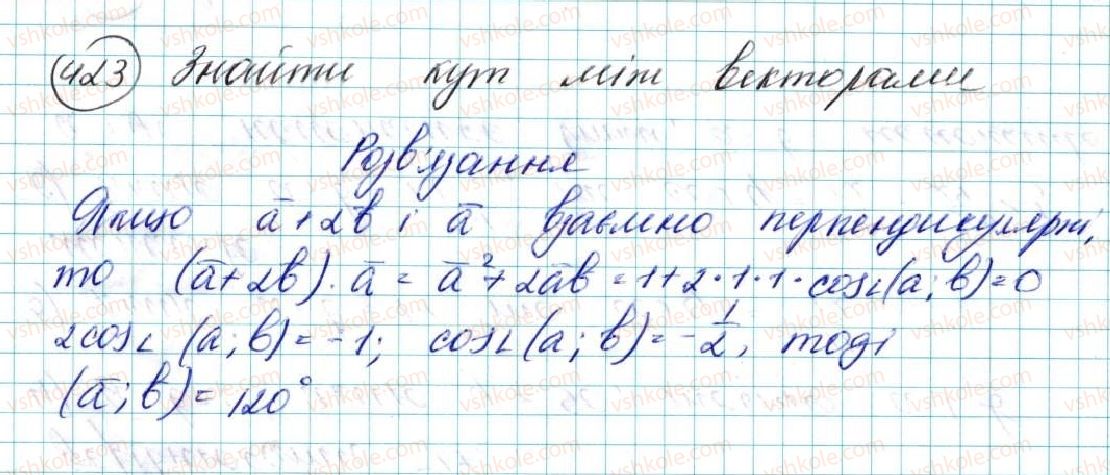 423 Знайти кут між векторами
Розв'язання
Якщо a̅+2b̅ і a̅ взаємно перпендикулярні,
то (a̅+2b̅)·a̅ = a̅²+2a̅b̅ = 1+2·1·1·cos∠(a̅;b̅)=0
2cos∠(a̅;b̅)=-1; cos∠(a̅;b̅)=-1/2, тоді
(a̅;b̅)=120°